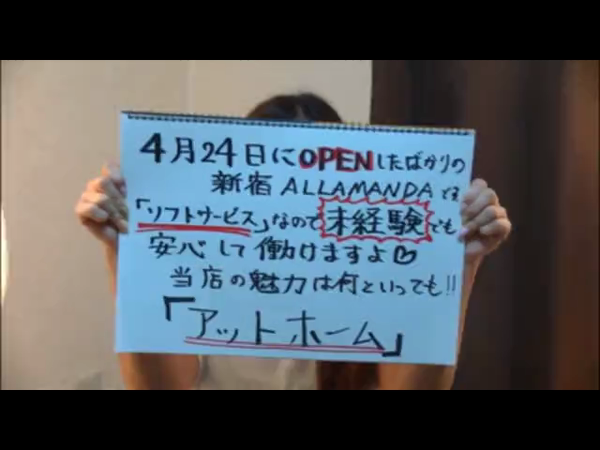 4月24日にOPENしたばかりの
新宿ALLAMANDAです
「ソフトサービス」なので未経験でも
安心して働けますよ♡
当店の魅力は何といっても!!
「アットホーム」